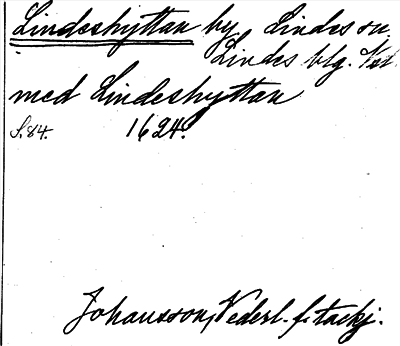 Lindeshyttan by, Lindes sn.
Lindes blg. Vstm.
med Lindeshyttan
S. 84. 1624.
Johansson, Vederl. f. tackj.